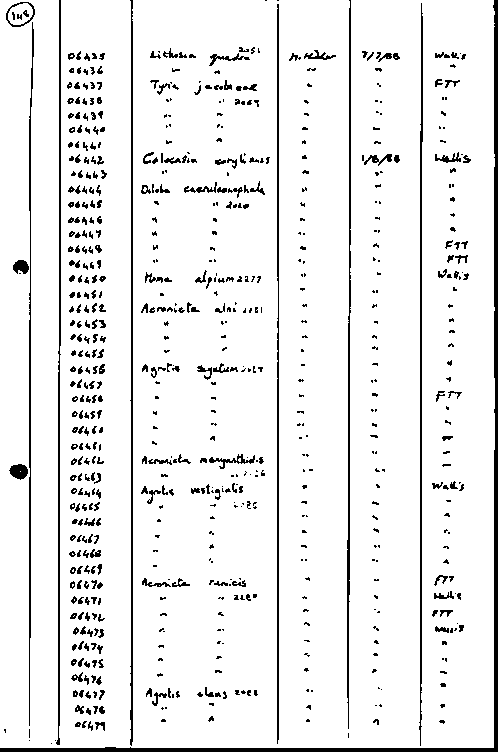 148
06435 Lithosia quadra 2051 7/7/88 Wallis
06436 " " " " "
06437 Tyria jacobaeae " " FTT
06438 " " 2069 " " "
06439 " " " " "
06440 " " " " "
06441 " " " " "
06442 Colocasia coryli " 1/8/88 Wallis
06443 " " " " "
06444 Diloba caeruleocephala " " "
06445 " " 2020 " " "
06446 " " " " "
06447 " " " " "
06448 " " " " FTT
06449 " " " " FTT
06450 Moma alpium 2277 " " Wallis
06451 " " " " "
06452 Acronicta alni 2281 " " "
06453 " " " " "
06454 " " " " "
06455 " " " " "
06456 Agrotis segetum " " "
06457 " " " " "
06458 " " " " FTT
06459 " " " " "
06460 " " " " "
06461 " " " " "
06462 Acronicta menyanthidis " " "
06463 " " "
06464 Agrotis vestigialis " " Wallis
06465 " " 2085 " " "
06466 " " " " "
06467 " " " " "
06468 " " " " "
06469 " " " " "
06470 Acronicta rumicis " " FTT
06471 " " " " Wallis
06472 " " " " FTT
06473 " " " " Wallis
06474 " " " " "
06475 " " " " "
06476 " " " " "
06477 Agrotis clavis 2088 " " "
06478 " " " " "
06479 " " " " "